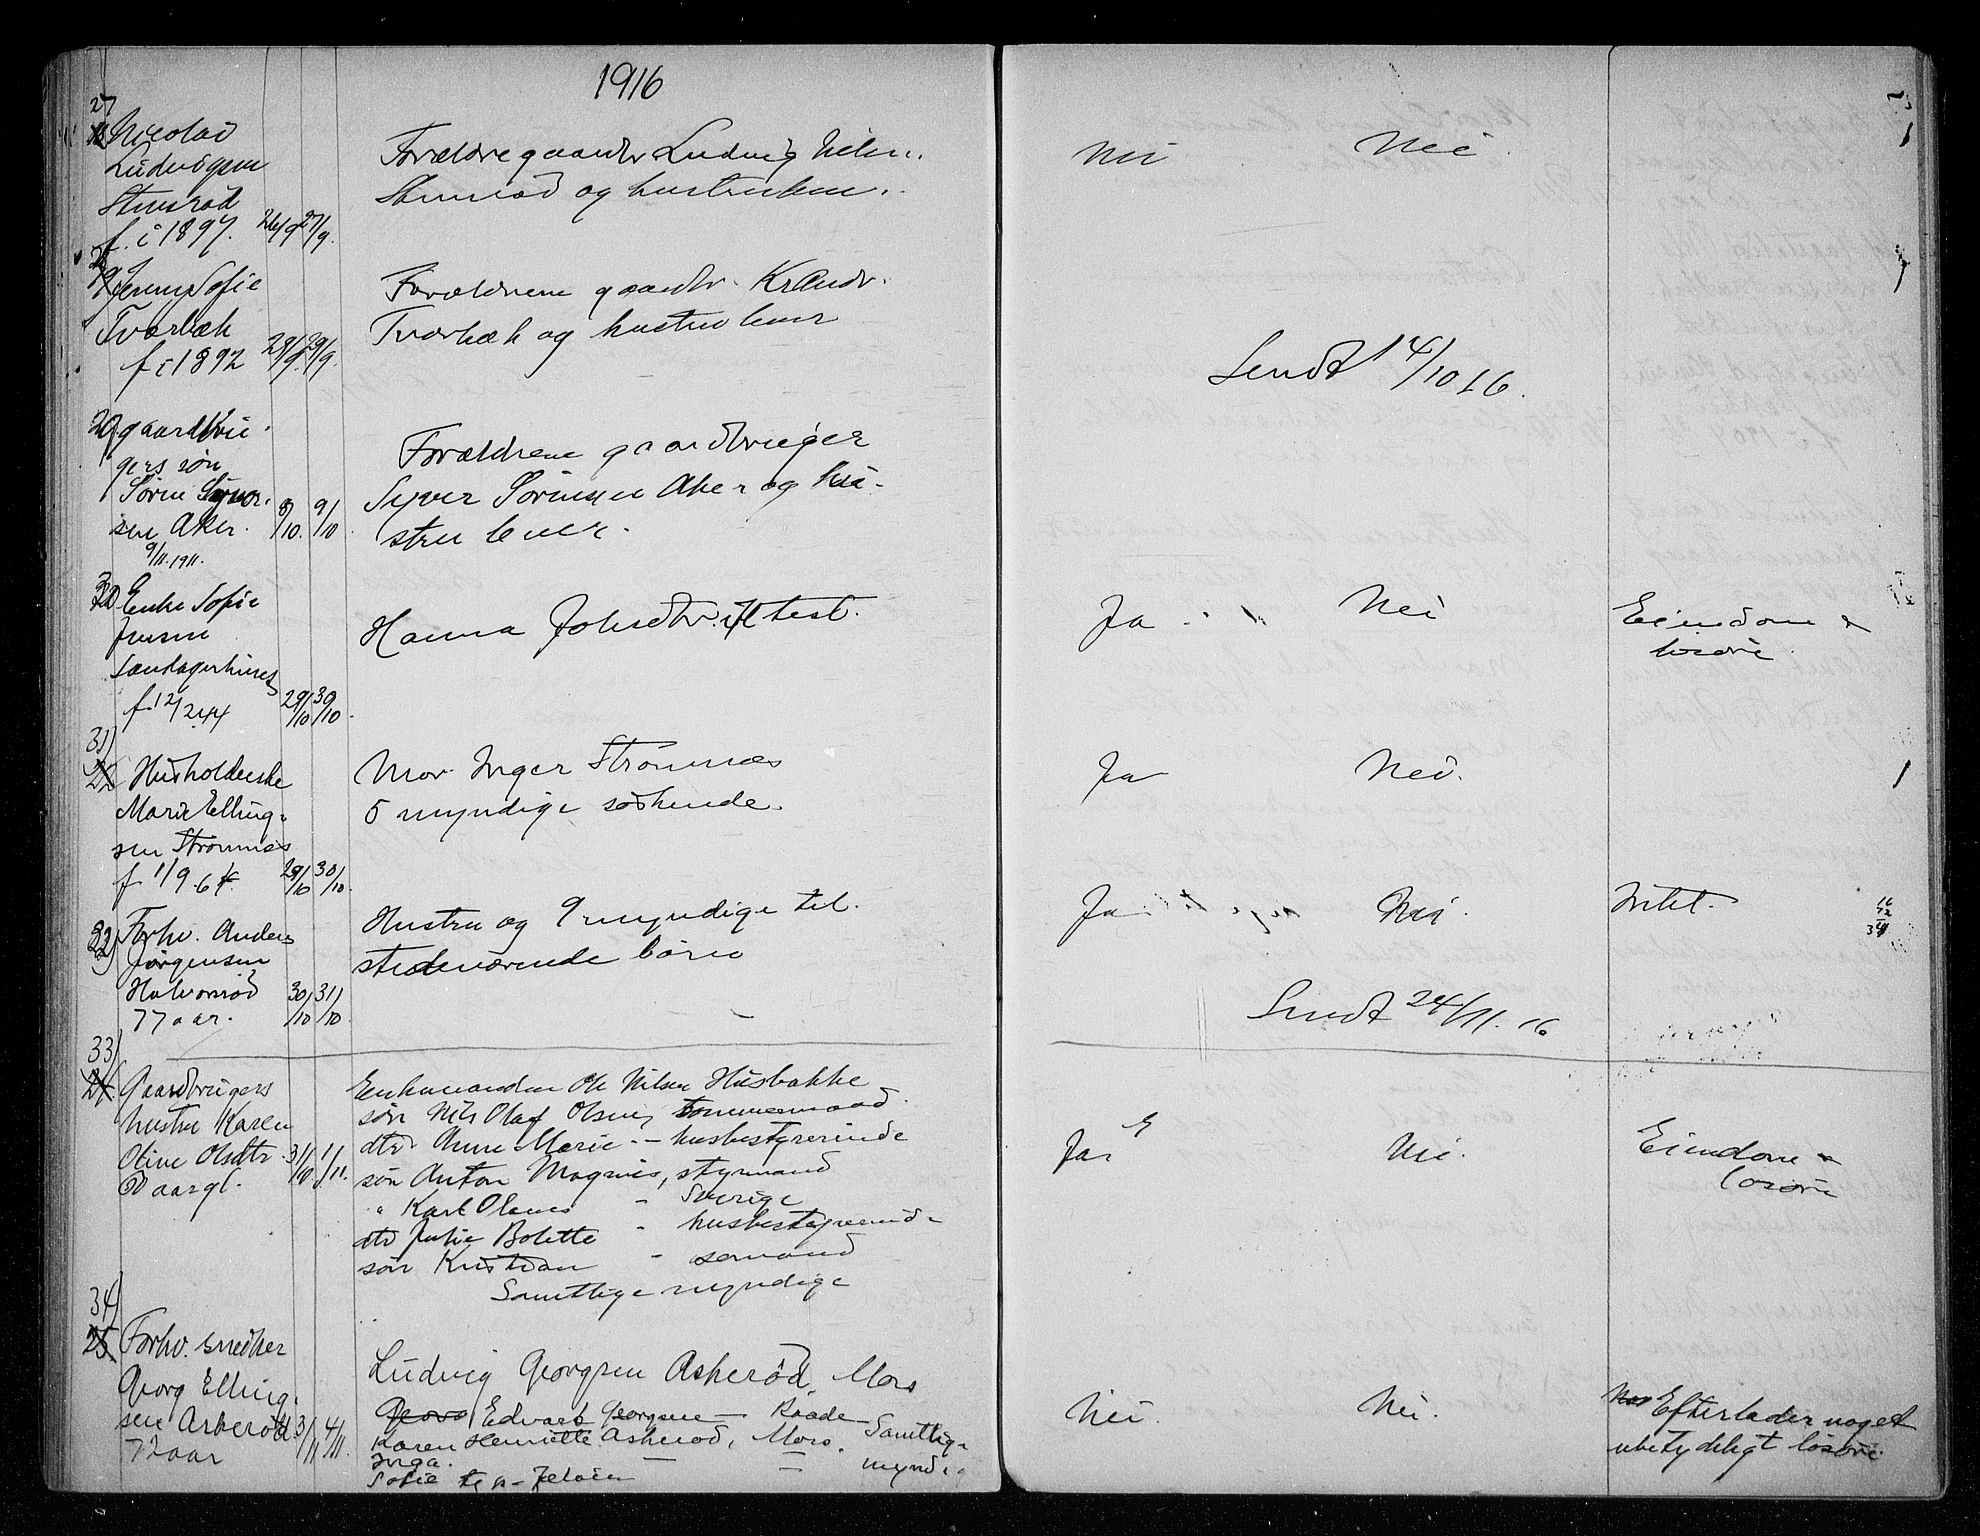 1916
27
Nicolai
Ludvigsen
Stensrød
f. i 1897. 26/9 27/9.
Forældre gaardbr Ludvig Nils.
Stensrød og hustru lever.
Nei Nei
Jenny Sofie
Tværbæk
f i 1892 29/9. 29/9.
Forældrene gaardbr. Kr Andr.
Tværbæk og hustru lever
Sendt 14/10 16.
29 gaardbru-
gers søn
Søren Syver-
sen Aker. 8/10. 9/10
9/11. 1911.
Forældrene gaardbruger
Syver Sørensen Aker og hu-
stru lever.
30 Enke Sofie
Jensen
f. 12/2 44 29/10 30/10.
Hanna Johsdtr. ifl test.
Ja Nei Eiendom &
løsøre
31)
22 Husholderske
Marie Elling-
sen Strømnæs
f 1/9 64. 29/10 30/10.
Mor Inger Strømnæs
5 myndige søskende.
Ja Nei.
32) Forhv. Anders
Jørgensen
Halvorsrød 30/10 31/10
77 aar.
Hustru og 9 myndige til-
stedeværende børn
Ja Nei. Intet.
Sendt 24/11. 16
33)
24 Gaardbrugers
hustru Karen
Oline Olsdtr 31/10 1/11.
aargl.
Enkemanden Ole Nilsen Husbakke
søn Nils Olaf Olsen, tømmermand.
dtr Anne Marie - husbestyrerinde
søn Anton Magnus, styrmand
" Karl Olaves - Sverige
dtr Julie Bolette - husbestyrerinde
søn Kristian - sømand
Samtlige myndige
Ja Nei. Eiendom &
løsøre
34)
25. Forhv. snedker
Georg Elling-
sen Askerød 3/11 4/11.
72 aar
Ludvig Georgsen Askerød, Moss
Edvart Georgsen - Raade - Samtlige
Karen Henriette Askerød, Moss. myndig
Inga. — —
Sofie - Jeløen
Nei. Nei. Efterlader noget
ubetydeligt løsøre